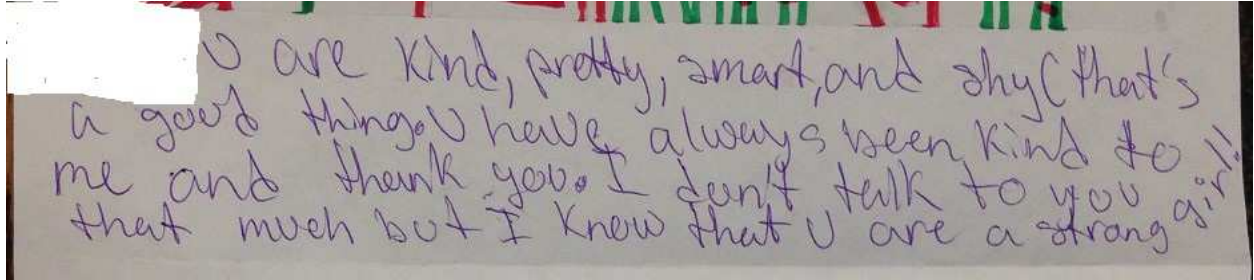 U are kind, pretty, smart, and shy (that's
a good thing. U have always been kind to
me and thank you. I don't talk to you
that much but I know that U are a strong girl!!